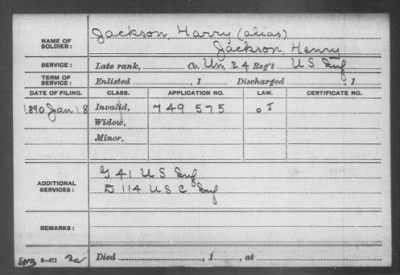 NAME OF SOLDIER: Jackson, Harry (alias)
Jackson, Henry
SERVICE: Late rank, Co. Un 24 Reg't U S Inf
TERM OF SERVICE: Enlisted , 1 Discharged 1
DATE OF FILING. CLASS. APPLICATION NO. LAW. CERTIFICATE NO.
1890 Jan 18 Invalid, 749 575
Widow,
Minor,
ADDITIONAL SERVICES: G 41 U S Inf
D 114 U S C Inf
REMARKS:
Died , 1 , at